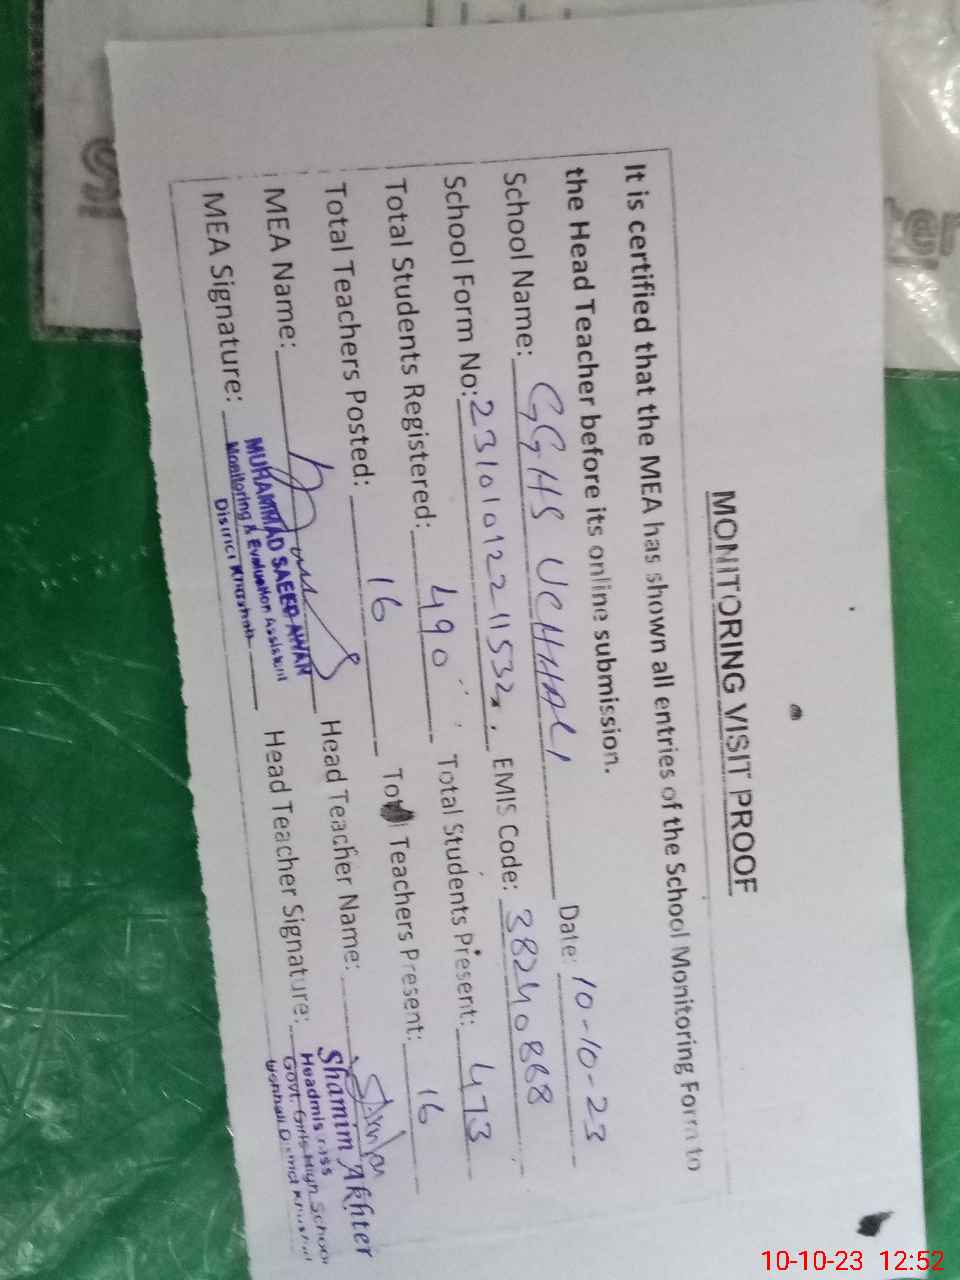 MONITORING VISIT PROOF
It is certified that the MEA has shown all entries of the School Monitoring Form to
the Head Teacher before its online submission.
School Name: GGHS UCHHALI Date: 10-10-23
School Form No: 23101012211532 EMIS Code: 38240868
Total Students Registered: 490 Total Students Present: 473
Total Teachers Posted: 16 Total Teachers Present: 16
MEA Name: Head Teacher Name:
MEA Signature: Head Teacher Signature:
MUHAMMAD SAEED AWAN
Monitoring & Evaluation Assistant
District Khushab
Shamim Akhter
Headmistress
Govt. Girls High School
District Khushab
10-10-23 12:52